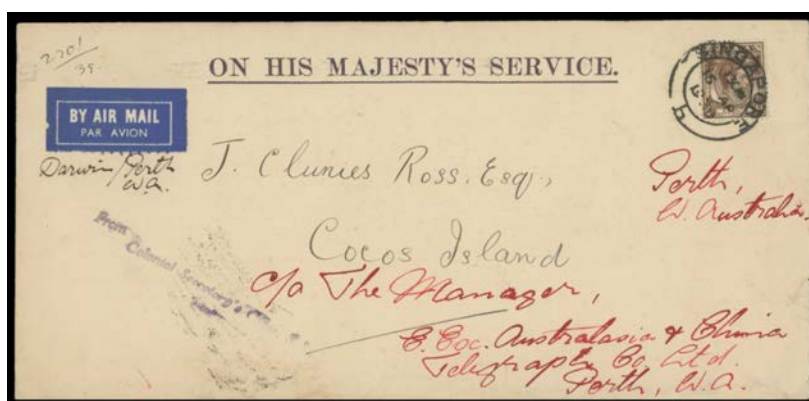 2701/39
ON HIS MAJESTY'S SERVICE.
SINGAPORE
BY AIR MAIL
PAR AVION
Darwin/Perth
W.A.
J. Clunies Ross. Esq.,
Perth,
W. Australia.
From
Colonial Secretary's
Cocos Island
c/o The Manager,
E. Exc. Australasia & China
Telegraph Co. Ltd.
Perth, W.A.